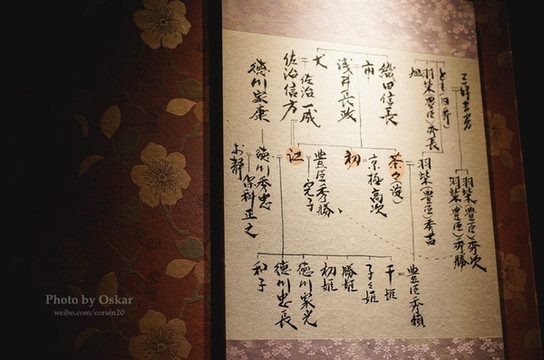 三好吉房
とも(日秀)
羽柴(豊臣)秀長
旭
羽柴(豊臣)秀次
羽柴(豊臣)秀勝
羽柴(豊臣)秀吉
織田信長
市
浅井長政
犬
佐治一成
佐治信方
徳川家康
茶々(淀)
京極高次
初
豊臣秀勝
完子
江
徳川秀忠
保科正之
お静
豊臣秀頼
千姫
子々姫
勝姫
初姫
徳川家光
徳川忠長
和子
Photo by Oskar
weibo.com/corain20